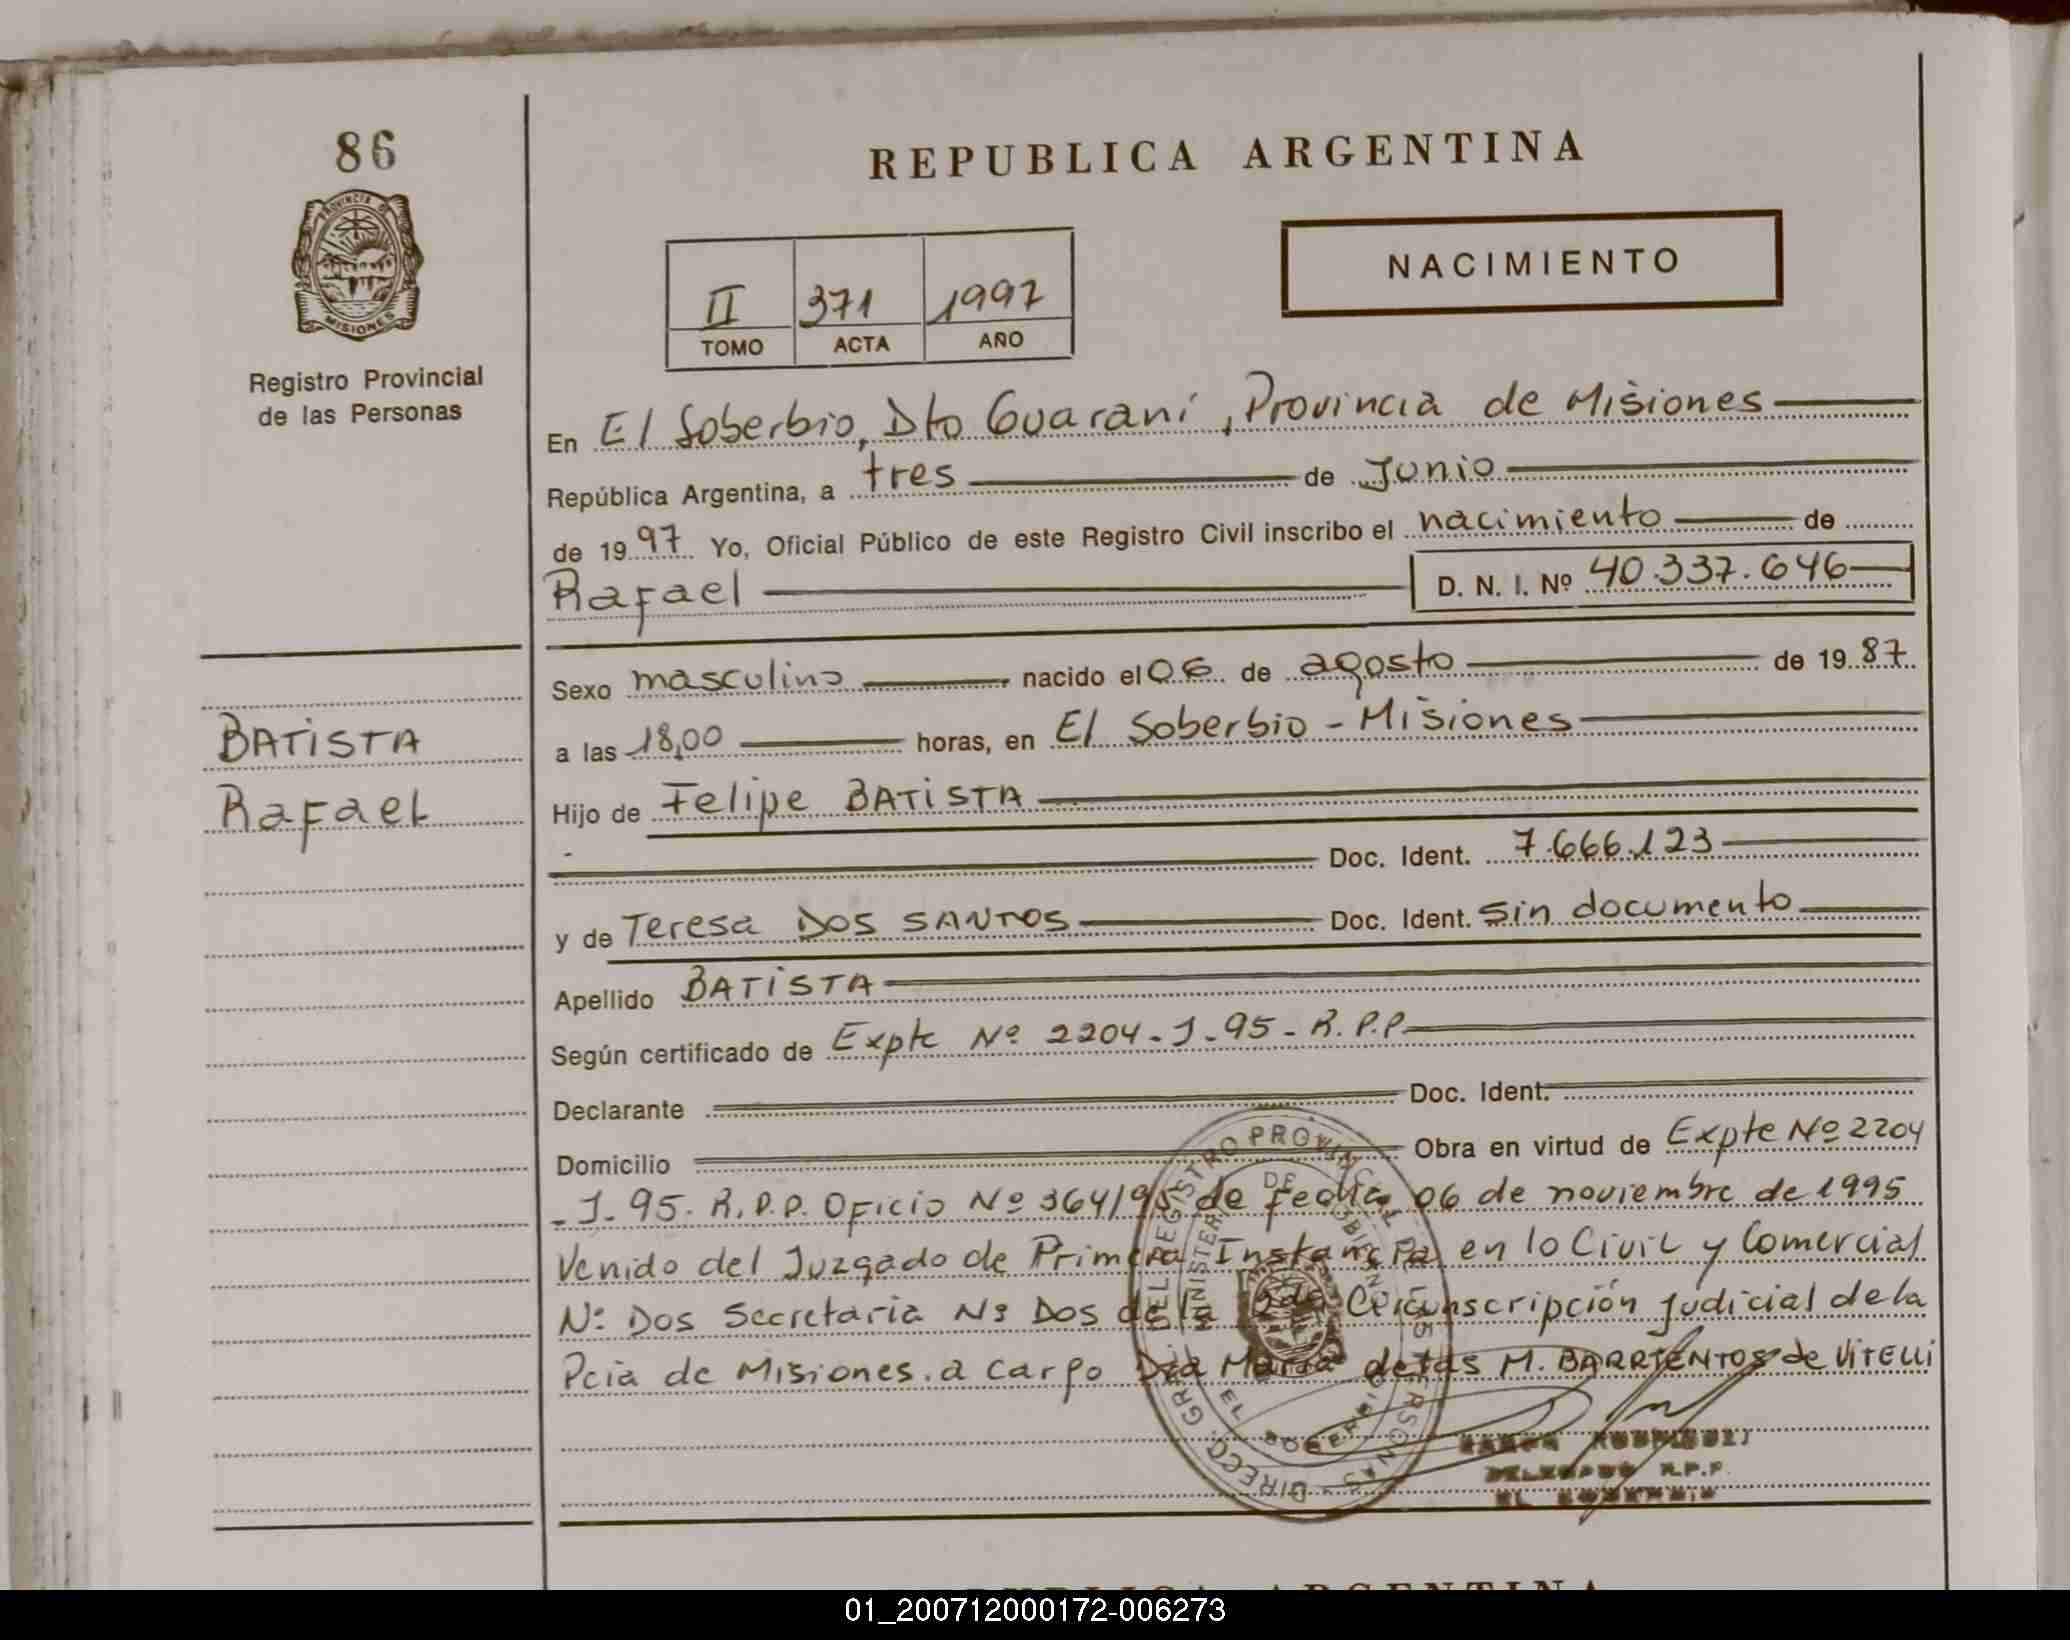 86
REPUBLICA ARGENTINA
PROVINCIA DE
MISIONES
Registro Provincial
de las Personas
II 371 1997
TOMO ACTA AÑO
NACIMIENTO
En El Soberbio, Dto Guaraní, Provincia de Misiones
República Argentina, a tres de Junio
de 1997 Yo, Oficial Público de este Registro Civil inscribo el nacimiento de
Rafael D. N. I. Nº 40.337.646
Sexo masculino nacido el 06 de agosto de 1987
BATISTA
Rafael
a las 18,00 horas, en El Soberbio - Misiones
Hijo de Felipe BATISTA
Doc. Ident. 7.666.123
y de Teresa DOS SANTOS Doc. Ident. Sin documento
Apellido BATISTA
Según certificado de Expte Nº 2204-J-95-R.P.P
Declarante Doc. Ident.
Domicilio Obra en virtud de Expte Nº 2204
-J-95-R.P.P. Oficio Nº 364/95 de fecha 06 de noviembre de 1995
Venido del Juzgado de Primera Instancia en lo Civil y Comercial
Nº Dos Secretaria Nº Dos de la 2da Circunscripción Judicial de la
Pcia de Misiones. a cargo Dra Maria de las M. BARRIENTOS de VITELLI
DIRECC. GRAL. DEL REGISTRO PROVINCIAL DE LAS PERSONAS
EL SOBERBIO
RODRIGUEZ
DELEGADO R.P.P.
EL SOBERBIO
REPUBLICA ARGENTINA
01_200712000172-006273